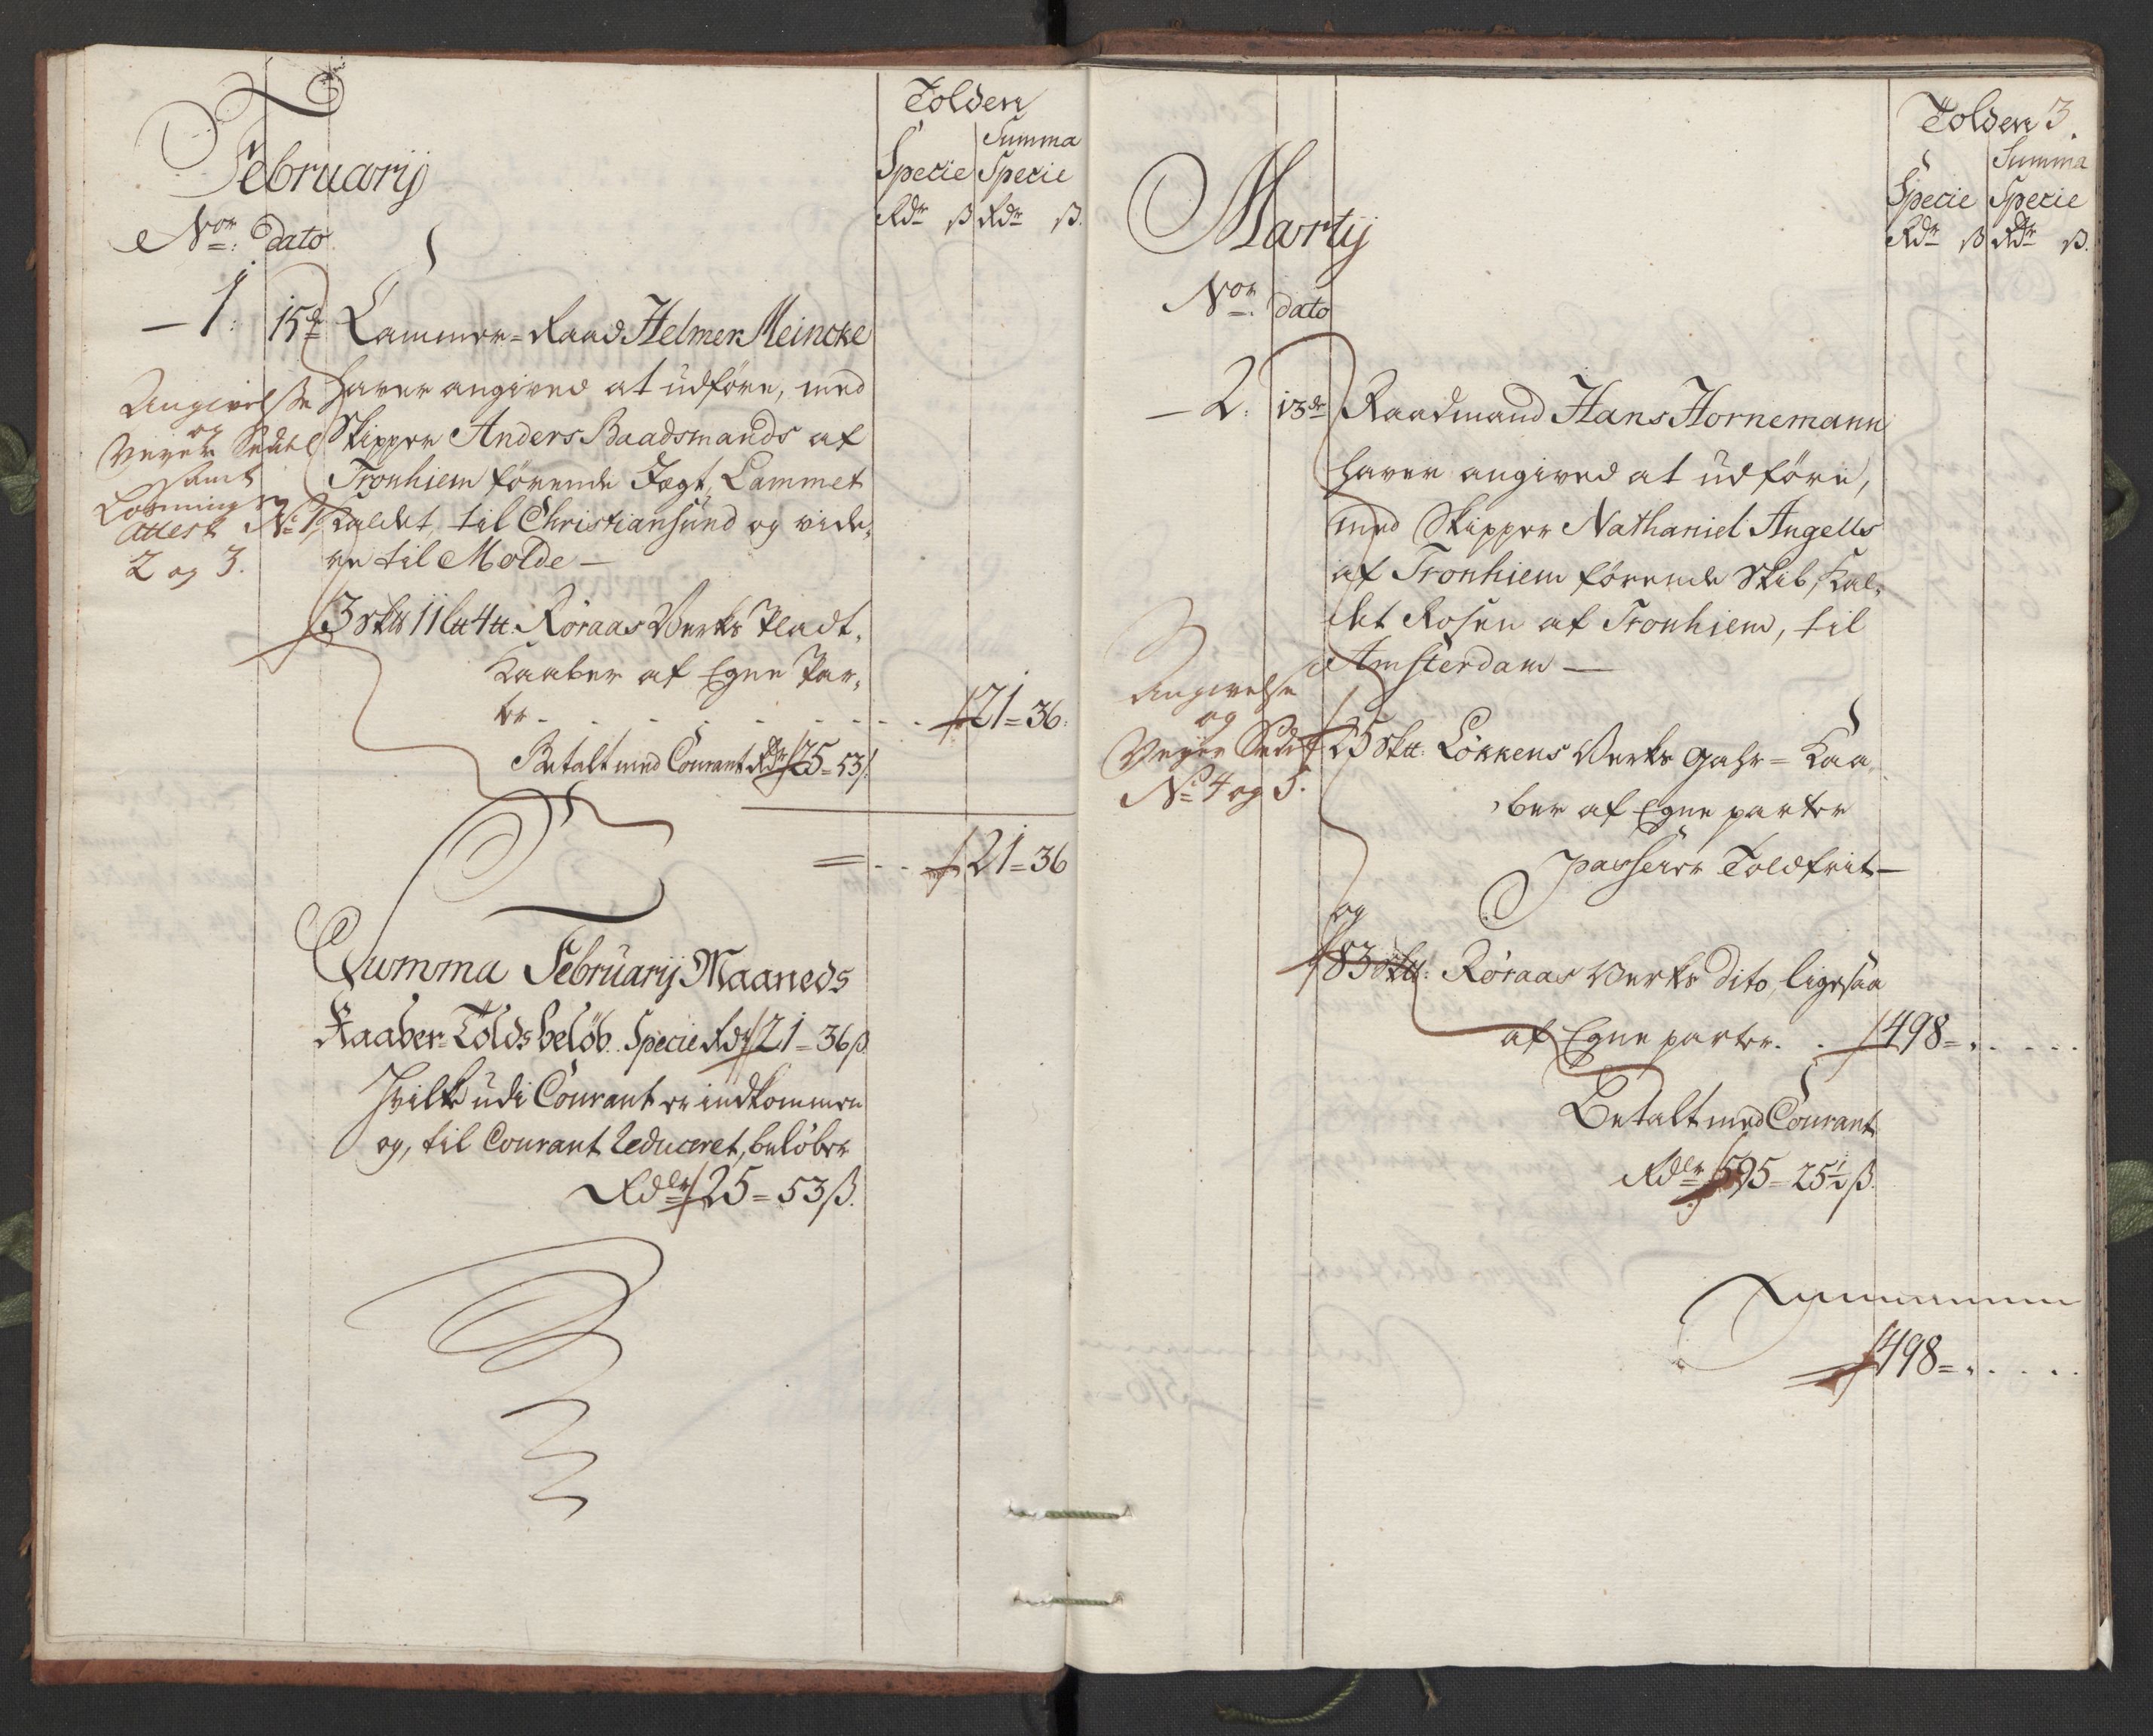 Tolden
Summa
Specie Specie
Rdr ß Rdr ß.
Februarij
Nor: dato
1: 15de Cammer=Raad Helmer Meincke
haver angived at udföre, med
Skipper Anders Baadsmands af
Tronhiem förende Jagt, Lammet
kaldet, til Christiansund og vide,
re til Molde —
Angivelse
og
Veyer Seddel
samt
Losnings
Attest No 1,
2 og 3.
3 sktt 11 Ltt 4 tt: Röraas Verks Pladt,
Kaaber af Egne Par,
ter - - - - - - - 21=36:
Betalt med Courant Rdr 25=53ß.
= - - 21=36
Summa Februarij Maaneds
Kaaber=Tolds belöb. Specie Rdr 21=36ß
Hvilke udi Courant er indkommen
og, til Courant Reduceret, belöber
Rdlr 25=53ß.
Tolden 3.
Summa
Specie Specie
Rdr ß Rdr ß.
Martij
Nor: dato
2: 13de Raadmand Hans Hornemann
haver angived at udföre,
med Skipper Nathaniel Angells
af Tronhiem förende Skib, Kal,
det Rosen af Tronhiem, til
Amsterdam —
Angivelse
og
Veyer Seddel
No 4 og 5.
25 sktt: Lökkens Verks Gahr=Kaa
ber af Egne parter
passerer Toldfrit —
og
83 sktt: Röraas Verks dito, ligesaa
af Egne parter. . 498=. . . . .
Betalt med Courant
Rdlr 595=25½ß.
498=. . . . .